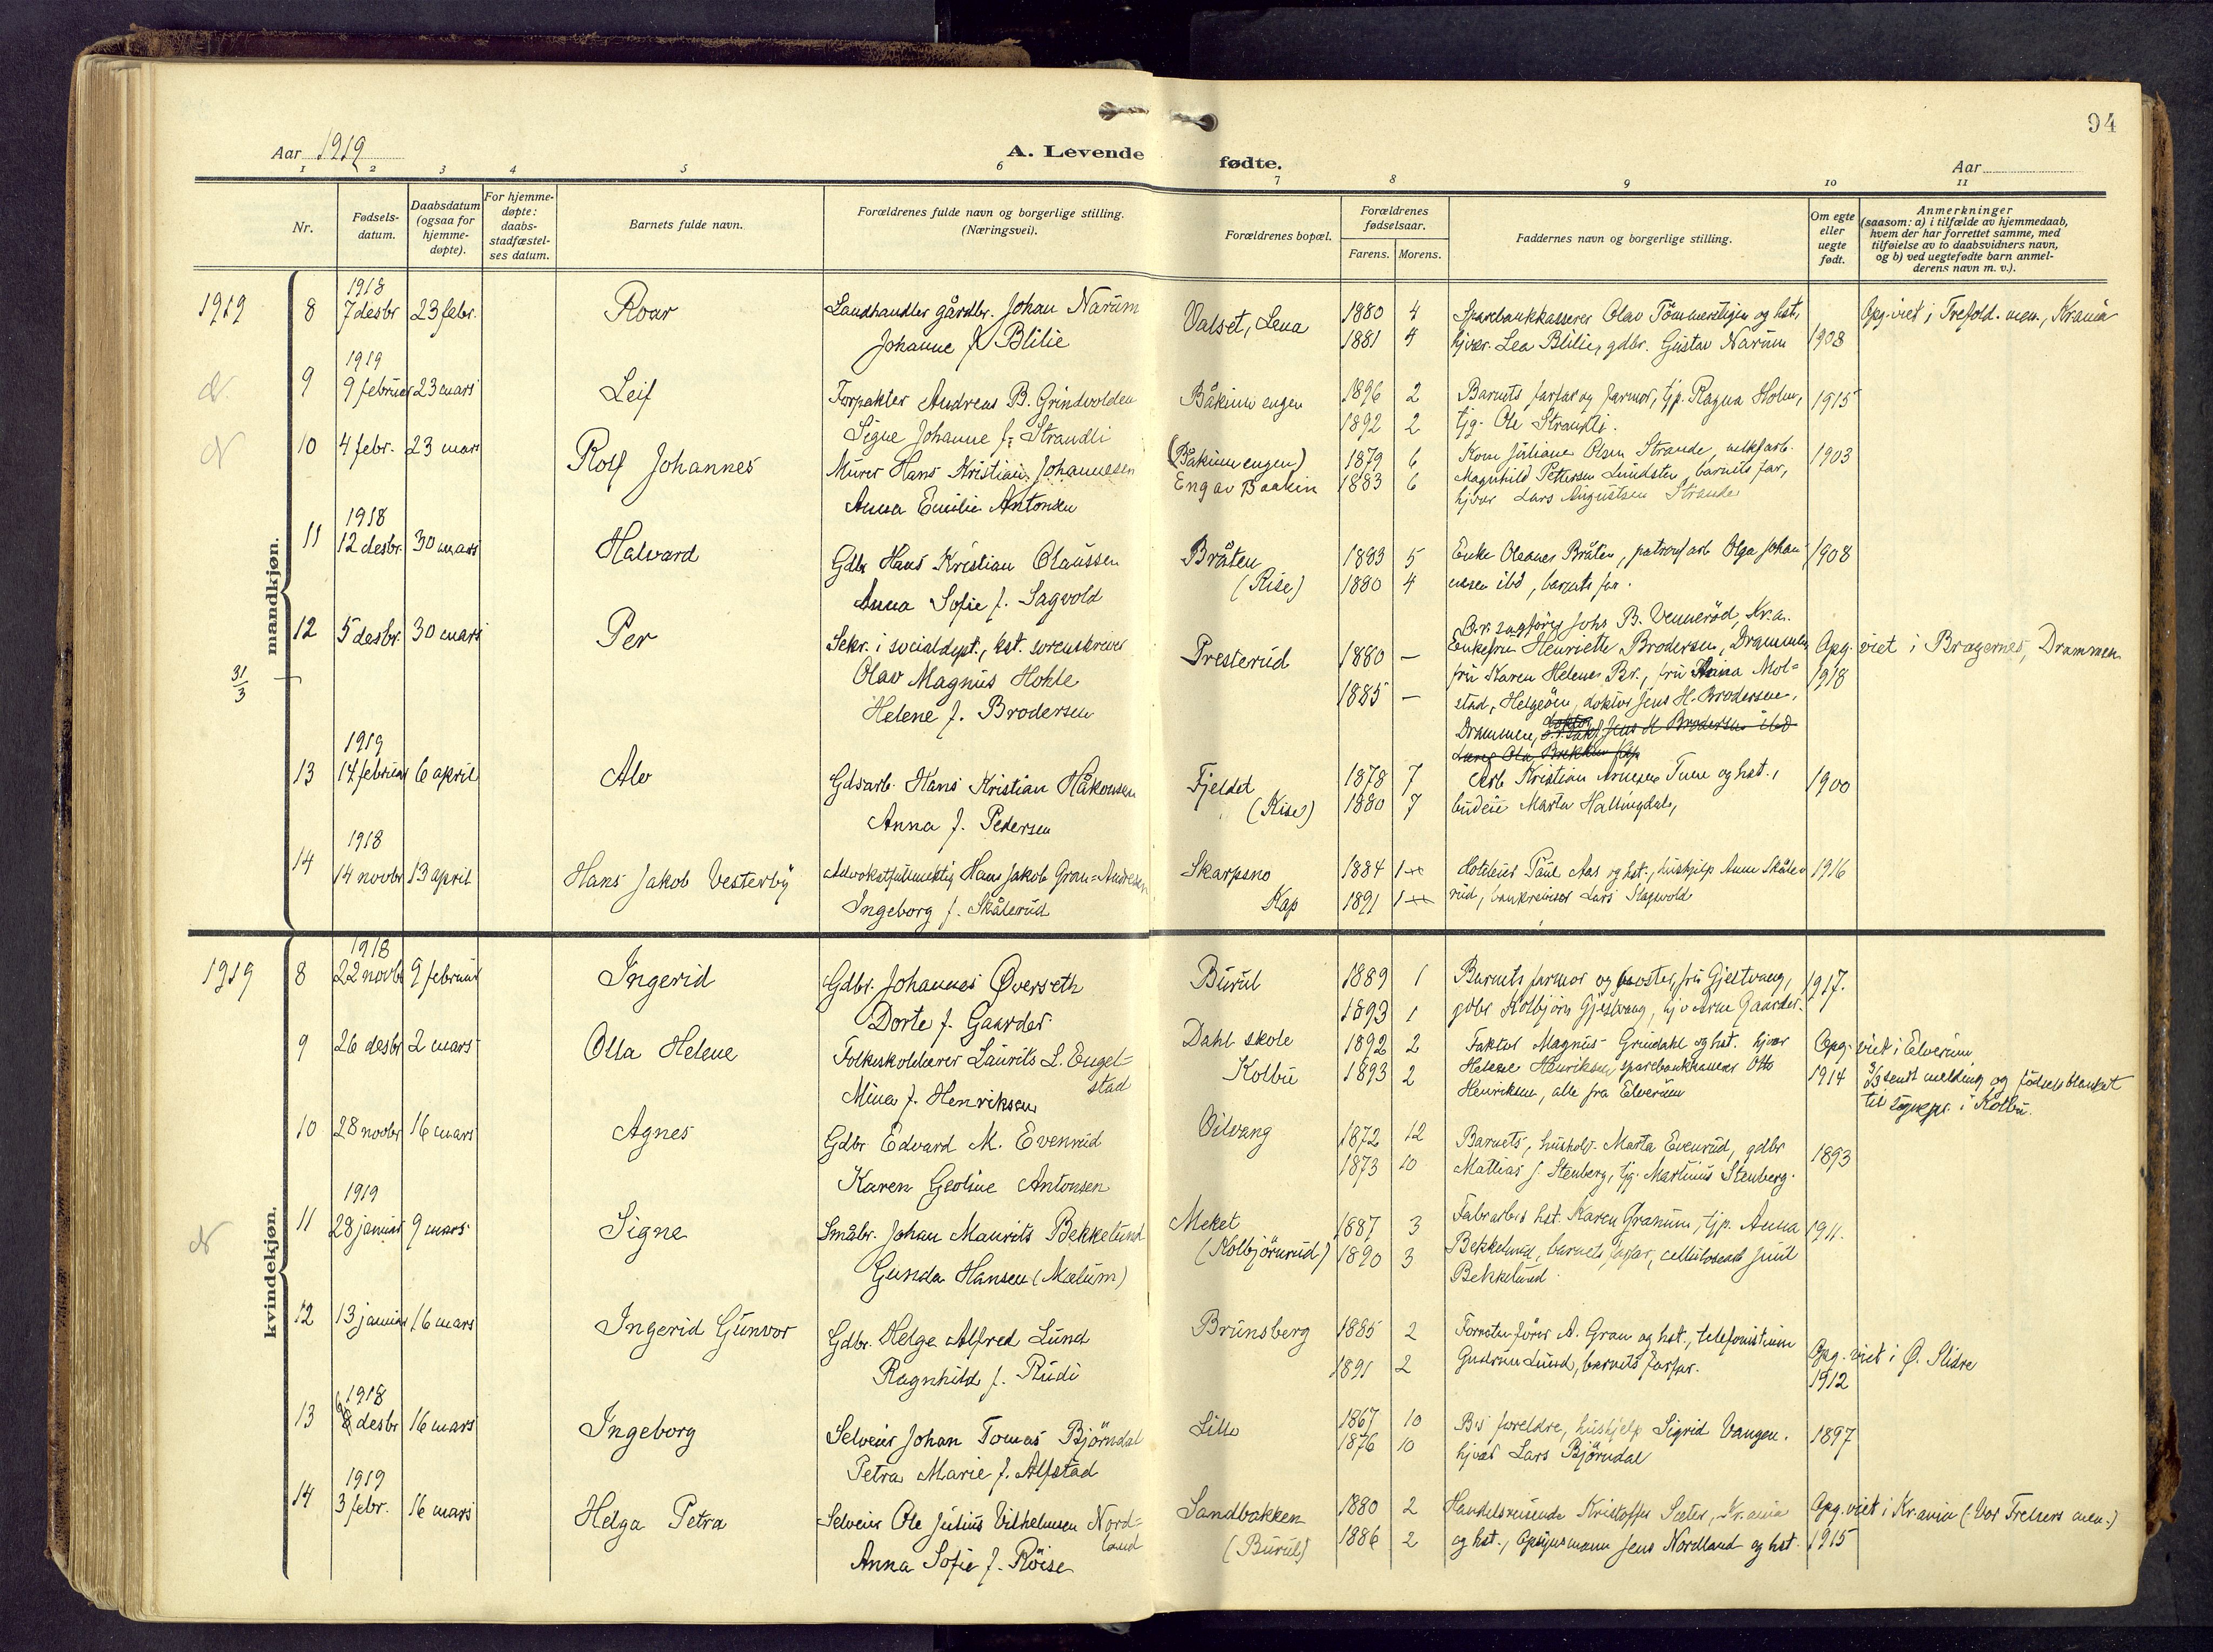 94
Aar 1919
A. Levende fødte.
Aar
1 2 3 4 5 6 7 8 9 10 11
Nr.
Fødsels-
datum.
Daabsdatum
(ogsaa for
hjemme-
døpte).
For hjemme-
døpte:
daabs-
stadfæstel-
ses datum.
Barnets fulde navn.
Forældrenes fulde navn og borgerlige stilling.
(Næringsvei).
Forældrenes bopæl.
Forældrenes
fødselsaar.
Farens. Morens.
Faddernes navn og borgerlige stilling.
Om egte
eller
uegte
født.
Anmerkninger
(saasom: a) i tilfælde av hjemmedaab,
hvem der har forrettet samme, med
tilføielse av to daabsvidners navn,
og b) ved uegtefødte barn anmel-
derens navn m. v.).
mandkjøn.
1919
8 1918 7 desbr 23 febr. Roar Landhandler gårdbr. Johan Narum Valset, Lena 1880 4 Sparebankkasserer Olav Tömmerstigen og hst, Opg. viet i Trefold. men., Krania
Johanne f. Blilie 1881 4 hjvær. Lea Blilie, gdbr. Gustav Narum 1908
9 1919 9 februar 23 mars Leif Forpakter Andreas B. Grindvolden Båkinn engen 1896 2 Barnets farfar og farmor, tjp. Ragna Holm, 1915
Signe Johanne f. Strandli 1892 2 tjg. Ole
10 4 febr. 23 mars Rolf Johannes Murer Hans Kristian Johannesen (Bakinn engen) 1879 6 Kone Juliane Olsen Strande, 1903
Anna Emilie Antonsen Eng av Baakin 1883 6 Magnhild Pettersen Lundsten barnets far,
hjvær Lars Augustsen Strande
11 1918 12 desbr. 30 mars Halvard Gdbr Hans Kristian Olaussen Bråten 1883 5 Enke Oleanes Bråten, Olga Johan- 1908
Anna Sofie f. Sagvold (Rise) 1880 4 nesen ibd, barnets far.
12 5 desbr. 30 mars Per Sekr. i socialdept., kst. sorenskriver Presterud 1880 — O.r. sagfører Johs B. Vennerød, Kr.a.
Olav Magnus Hohle 1885 — Enkefru Henriette Brodersen, Drammen Opg. viet i Bragernes, Drammen
Helene f. Brodersen fru Karen Helene Br., fru Anna Mol- 1918
stad, Helgeöen, doktor Jens H. Brodersen,
Drammen, Jens H Brodersen ibd
31/3
13 1919 14 februar 6 april Alv Gdsarb. Hans Kristian Håkonsen Fjeldet 1878 7 Arb Kristian Arnesen Tune og hst., 1900
Anna f. Pedersen (Kise) 1880 7 budeie Marta Hallingdal,
14 1918 14 novbr 13 april Hans Jakob Vesterby Advokatfuldmektig Hans Jakob Gran-Andresen Skarpsno 1884 1 Hoteleier Paul Aas og hst., hushjelp Anne Skåle- 1916
Ingeborg f. Skålerud Kap 1891 1 rud, bankreviser Lars Slagsvold
kvindekjøn.
1919
8 1918 22 novb 9 februar Ingerid Gdbr. Johannes Øverseth Burul 1889 1 Barnets farmor og foster, fru Gjestvang, 1917.
Dorte f. Gaarder 1893 1 gdbr Kolbjørn Gjestvang, hjv Arne Gaarder.
9 26 desbr 2 mars Olla Helene Folkeskolelærer Laurits L. Engel- Dahl skole 1892 2 Faktor Magnus Grindahl og hst. hjvær Opg. viet i Elverum
stad
Mina f. Henriksen Kolbu 1893 2 Helene Henriksen, sparebankkasserer Otto 1914 3/3 sendt melding og fødselsblanket
Henriksen, alle fra Elverum til sognepr. i Kolbu.
10 28 novbr 16 mars Agnes Gdbr Edvard M. Evenrud Vilvang 1872 12 Barnets, hushold. Marta Evenrud, gdbr 1893
Karen Geoline Antonsen 1873 10 Mattias J. Stenberg, tjg. Martinius Stenberg.
11 1919 28 januar 9 mars Signe Småbr. Johan Maurits Bekkelund Meket 1887 3 Fabrarbs hst. Karen Granum, tjp. Anna 1911.
Gunda Hansen (Mælum) (Kolbjörnrud) 1890 3 Bekkelund, barnets farfar, Juul
Bekkelund
12 13 januar 16 mars Ingerid Gunvor Gdbr. Helge Alfred Lund Brunsberg 1885 2 Forretn.fører A. Gran og hst., telefonistinne Opg. viet i Ø. Slidre
Ragnhild f. Rudi 1891 2 Gudrun Lund, barnets farfar. 1912
13 1918 8 desbr 16 mars Ingeborg Selveier Johan Tomas Björndal Lillo 1867 10 B's foreldre, hushjelp Sigrid Vangen. 1897
Petra Marie f. Alfstad 1876 10 hjvær Lars Björndal
14 1919 3 febr. 16 mars Helga Petra Selveier Ole Julius Vilhelmsen Nord- Sandbakken 1880 2 Handelsreisende Kristoffer Sæter, Kr.ania Opg. viet i Kr.ania (Vor Frelsers men.)
land
Anna Sofie f. Röise (Burul) 1886 2 og hst., Opsynsmann Jens Nordland og hst. 1915